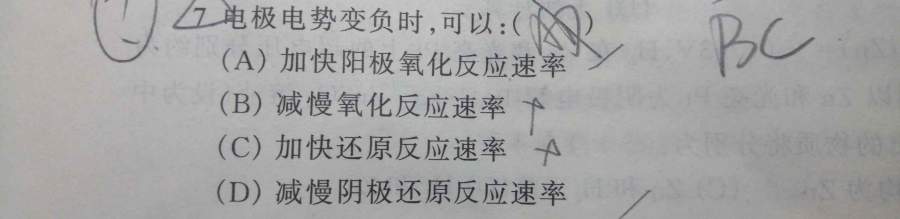 7 电极电势变负时,可以:( )
BC
(A) 加快阳极氧化反应速率
(B) 减慢氧化反应速率
(C) 加快还原反应速率
(D) 减慢阴极还原反应速率